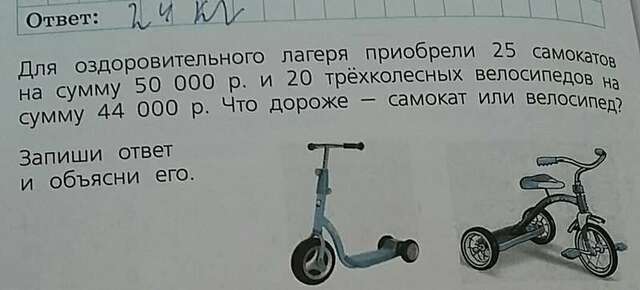 Ответ: 24 кг
Для оздоровительного лагеря приобрели 25 самокатов
на сумму 50 000 р. и 20 трёхколесных велосипедов на
сумму 44 000 р. Что дороже – самокат или велосипед?
Запиши ответ
и объясни его.